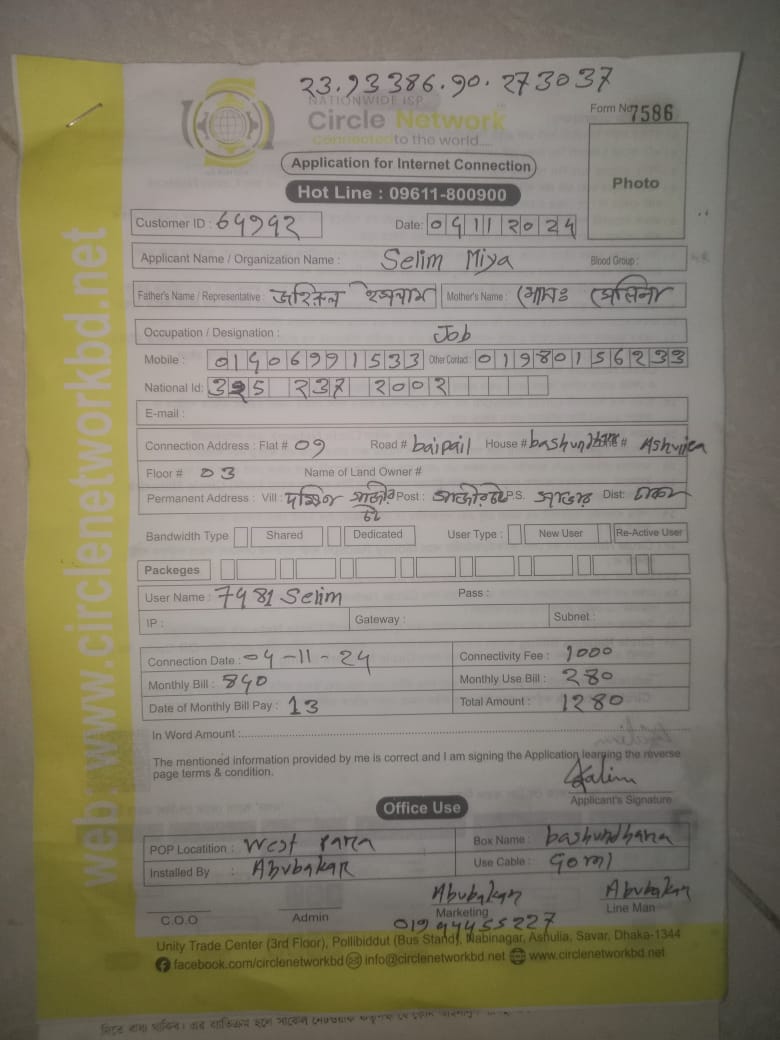 23.93386.90.273037
NATIONWIDE ISP
Circle Network
Connected to the world....
Form No 7586
Application for Internet Connection
Photo
Hot Line : 09611-800900
Customer ID : 64992 Date: 04112024
Applicant Name / Organization Name : Selim Miya Blood Group :
Father's Name / Representative : Mother's Name : মোসাঃ সেলিনা
Occupation / Designation : Job
Mobile : 01406991533 Other Contact : 01980156233
National Id: 325 237 2002
E-mail :
Connection Address : Flat # 09 Road # baipail House # bashundhara # Ashuliea
Floor # 03 Name of Land Owner #
Permanent Address : Vill: দক্ষিণ গাজীরচট Post : গাজীরচট P.S. সাভার Dist: ঢাকা
Bandwidth Type Shared Dedicated User Type : New User Re-Active User
Packeges
User Name : 7481 Selim Pass :
IP : Gateway : Subnet :
Connection Date : 04-11-24 Connectivity Fee : 1000
Monthly Bill : 840 Monthly Use Bill : 280
Date of Monthly Bill Pay : 13 Total Amount : 1280
In Word Amount :
The mentioned information provided by me is correct and I am signing the Application learning the reverse
page terms & condition.
Salim
Applicant's Signature
Office Use
POP Locatition : West Para Box Name : bashundhara
Installed By : Abubakar Use Cable :
Abubakar Abubakar
C.O.O Admin Marketing Line Man
01944455227
Unity Trade Center (3rd Floor), Pollibiddut (Bus Stand), Nabinagar, Ashulia, Savar, Dhaka-1344
facebook.com/circlenetworkbd info@circlenetworkbd.net www.circlenetworkbd.net
web: www.circlenetworkbd.net